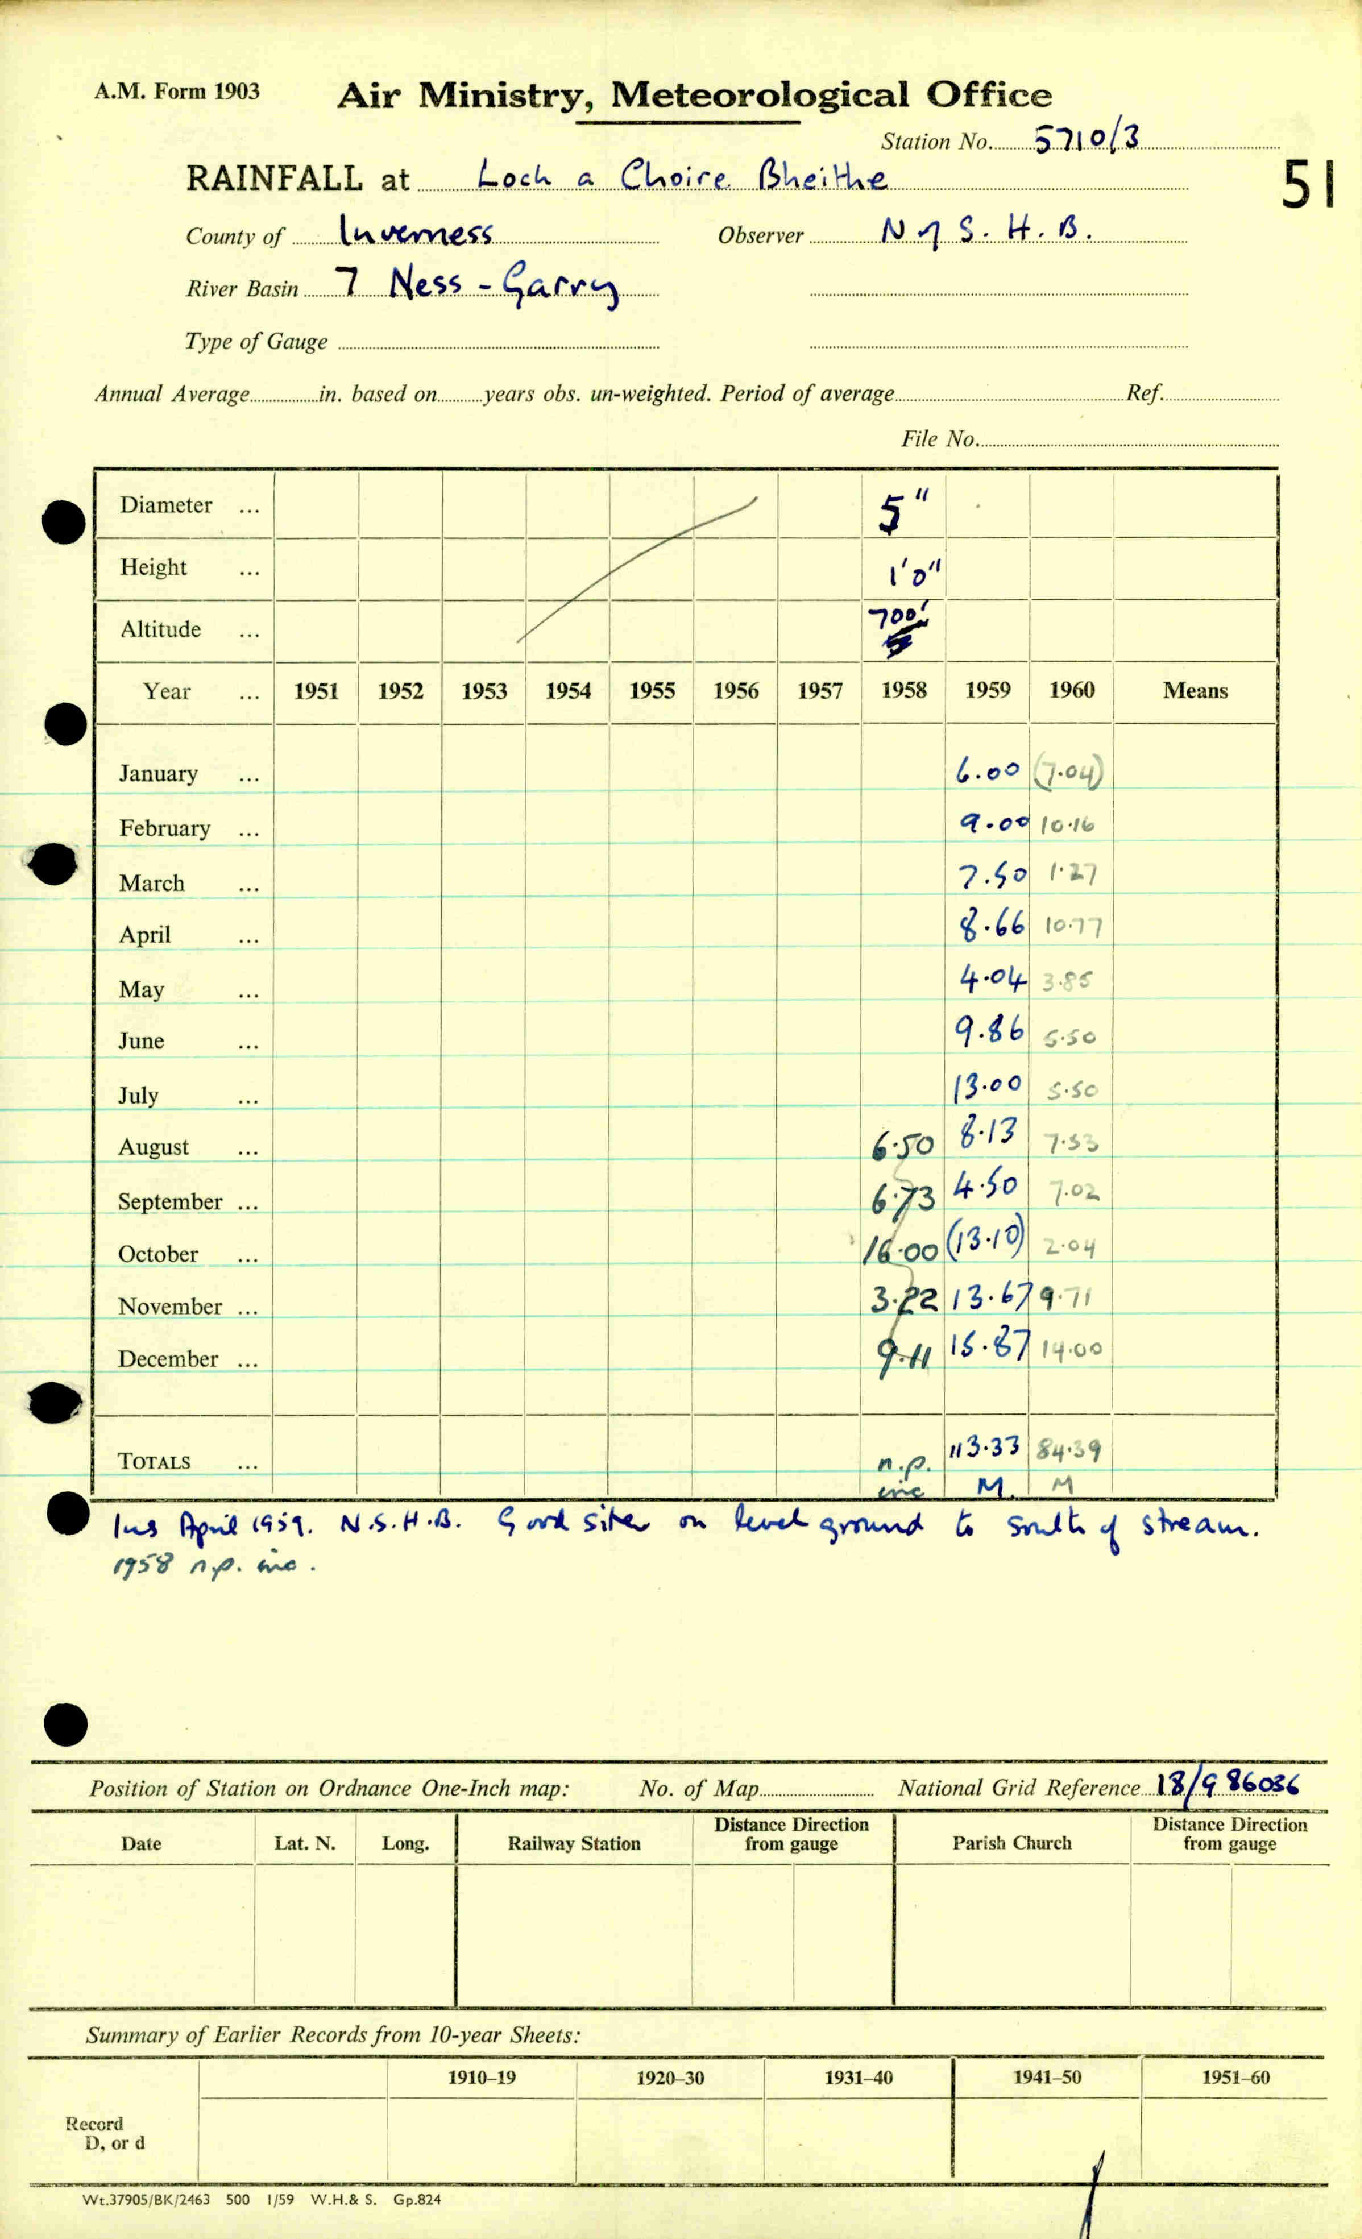 A.M. Form 1903 Air Ministry, Meteorological Office
Station No. 5710/3
RAINFALL at Loch a Choire Bheithe 51
County of Inverness Observer N of S. H. B.
River Basin 7 Ness - Garry
Type of Gauge
Annual Average in. based on years obs. un-weighted. Period of average Ref.
File No.
Diameter ... 5"
Height ... 1'0"
Altitude ... 700'
Year ... 1951 1952 1953 1954 1955 1956 1957 1958 1959 1960 Means
January ... 6.00 (7.04)
February ... 9.00 10.16
March ... 7.50 1.27
April ... 8.66 10.77
May ... 4.04 3.85
June ... 9.86 5.50
July ... 13.00 5.50
August ... 6.50 8.13 7.53
September ... 6.73 4.50 7.02
October ... 16.00 (13.10) 2.04
November ... 3.22 13.67 9.71
December ... 9.11 15.87 14.00
TOTALS ... n.p. 113.33 84.39
inc M. M
Ins April 1959. N.S.H.B. Good site on level ground to south of stream.
1958 n.p. inc.
Position of Station on Ordnance One-Inch map: No. of Map National Grid Reference 18/986036
Date Lat. N. Long. Railway Station Distance Direction from gauge Parish Church Distance Direction from gauge
Summary of Earlier Records from 10-year Sheets:
1910–19 1920–30 1931–40 1941–50 1951–60
Record
D, or d
Wt.37905/BK/2463 500 1/59 W.H.& S. Gp.824